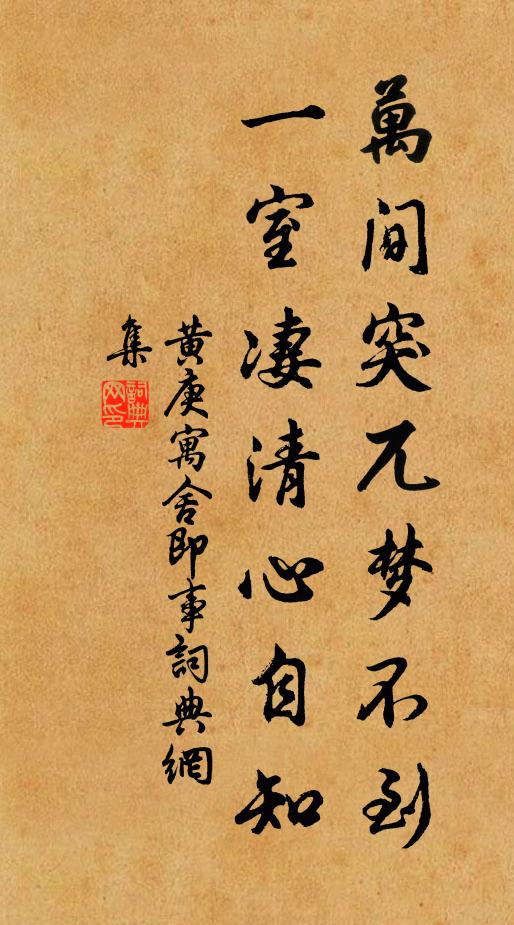 萬間突兀梦不到
一室凄清心自知
黄庚寓舍即事詞典網
集
詞典網印